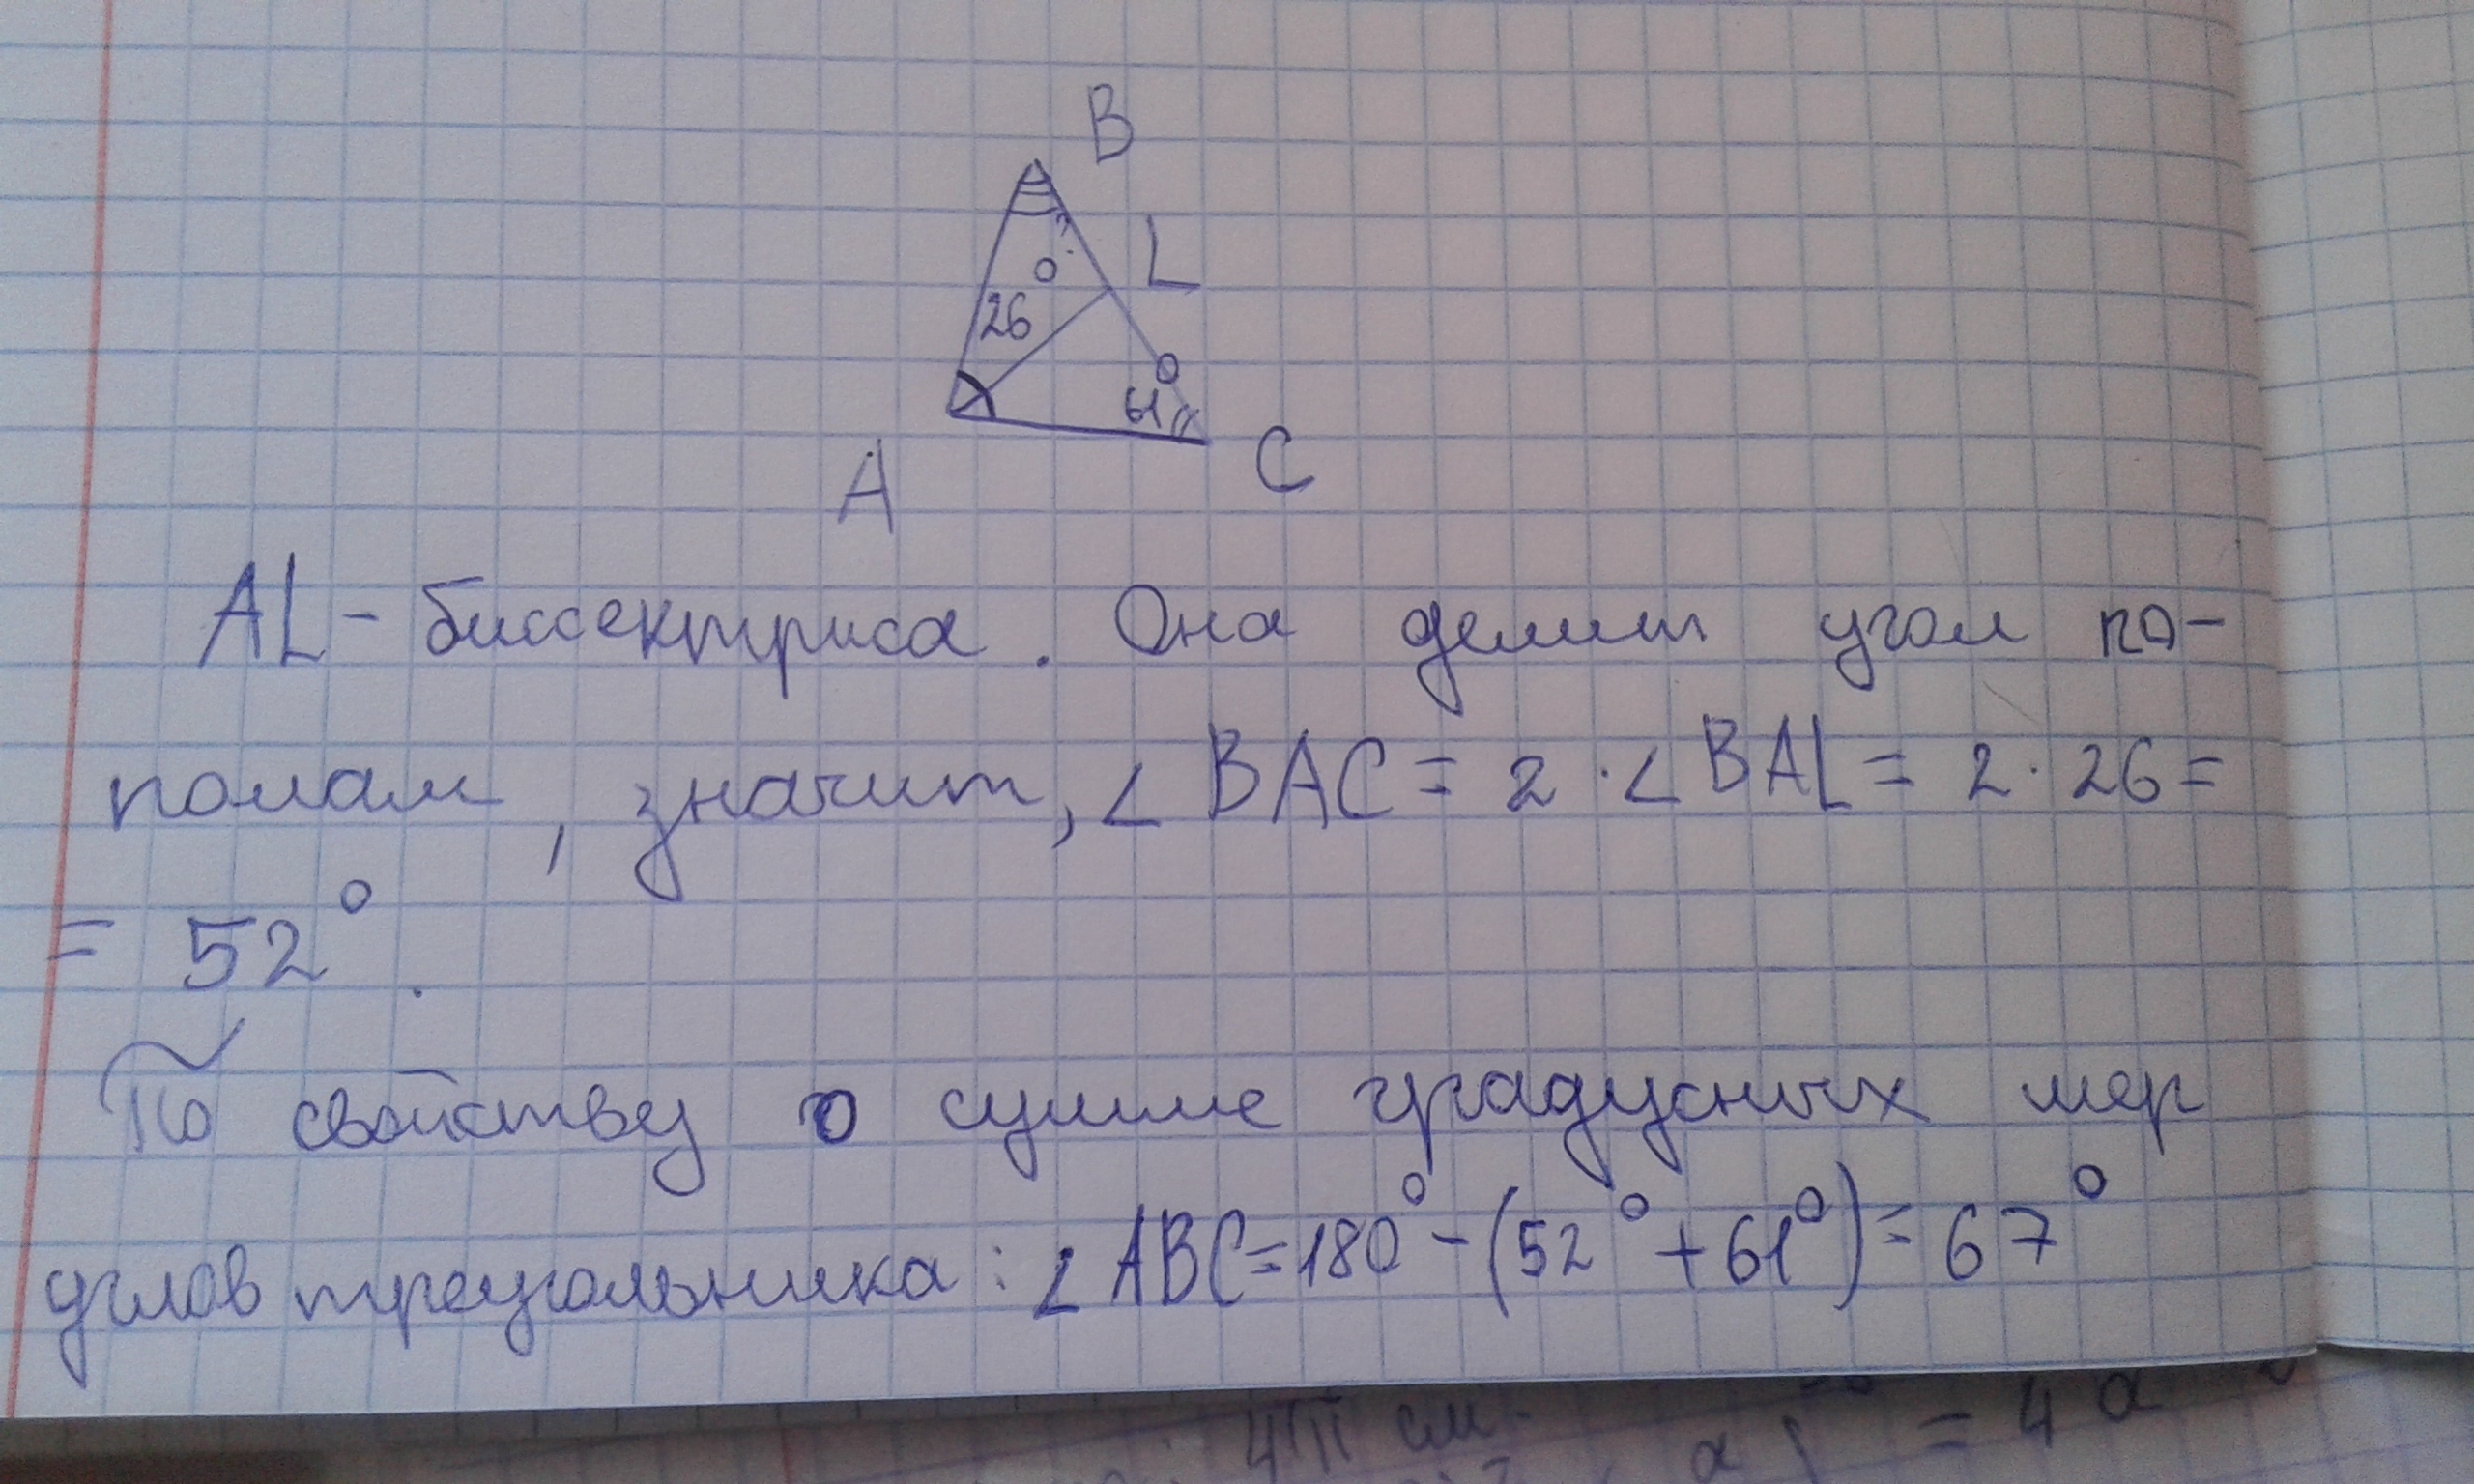 B
?
L
26°
61°
A
C
AL - биссектриса. Она делит угол по-
полам, значит, ∠ BAC = 2 · ∠ BAL = 2 · 26 =
= 52°.
По свойству о сумме градусных мер
углов треугольника: ∠ ABC = 180° - (52° + 61°) = 67°
4π см.
= 4a